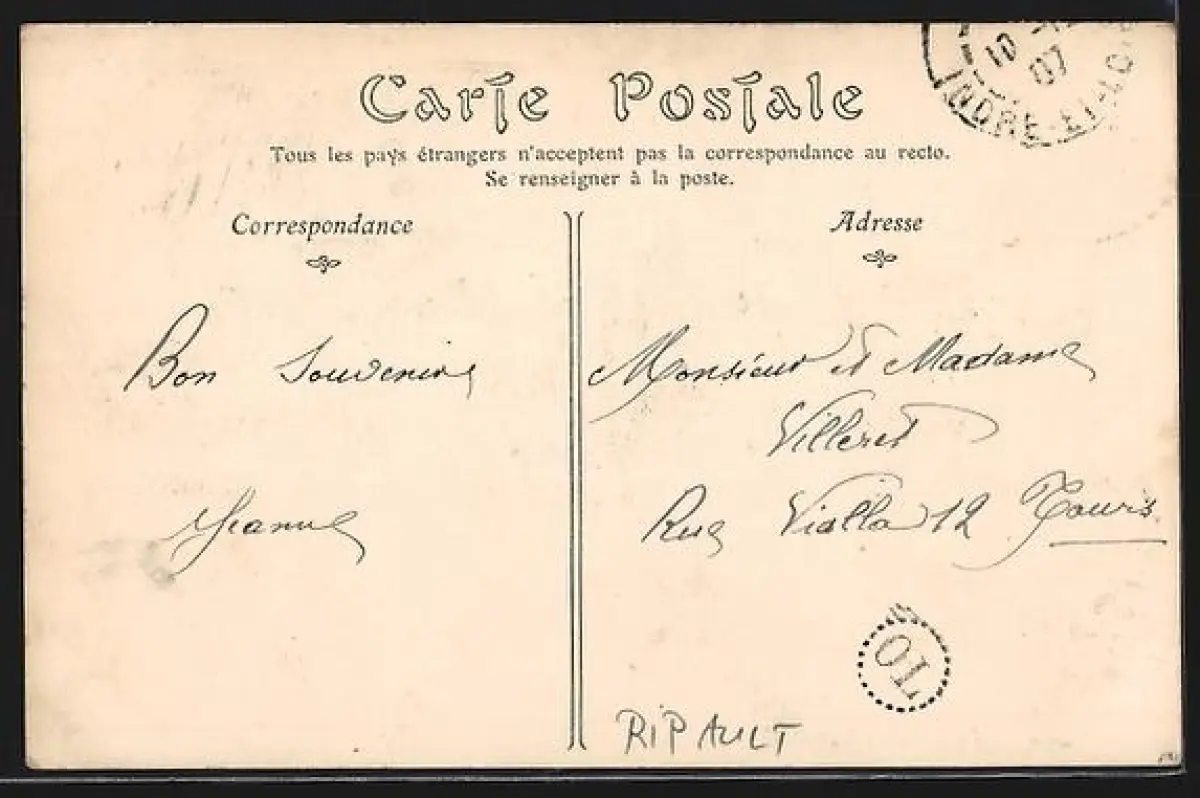 Carte Postale
Tous les pays étrangers n'acceptent pas la correspondance au recto.
Se renseigner à la poste.
Correspondance
Adresse
Bon Souvenir
Jeanne
Monsieur et Madame
Villeret
Rue Viala 12 Tours
RIPAULT
10
07
INDRE-ET-